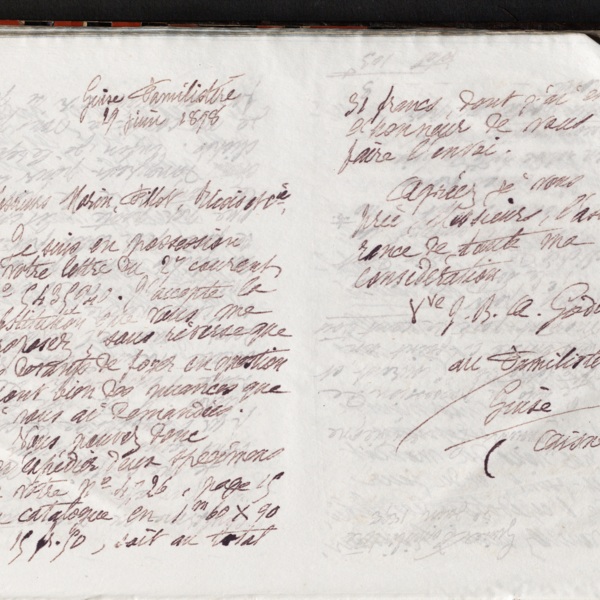 Guise Familistère
29 juin 1898
Messieurs Marion, Fillot, Ricois et Cie,
Je suis en possession
votre lettre du 27 courant
J'accepte la
que vous me
proposez, sous réserve que
devants de foyer en question
sont bien des nuances que
je vous ai demandées.
Vous pouvez donc
expédier deux spécimens
de votre no 4726, page 15
catalogue en 1m60 X 90
15 fr. 50, soit au total
31 francs, dont j'ai
l'honneur de vous
faire l'envoi.
Agréez, je vous
prie, Messieurs, l'assu
rance de toute ma
considération
Vve J. B. A. Godi
au Familist
Guise
(aisne